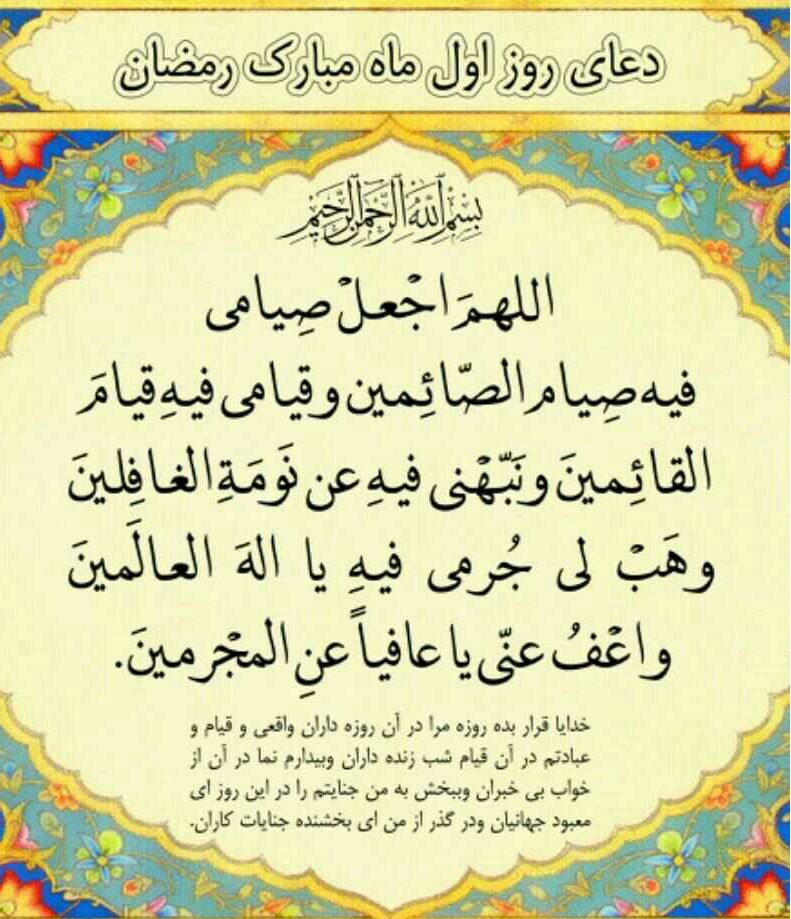 دعای روز اول ماه مبارک رمضان
بِسْمِ اللَّهِ الرَّحْمَنِ الرَّحِيمِ
اللهمَ اجْعلْ صِیامی
فیه صِیام الصّائِمین و قیامی فیهِ قیامَ
القائِمینَ و نَبّهْنی فیهِ عن نَومَةِ الغافِلینَ
وهَبْ لی جُرمی فیهِ یا الهَ العالَمینَ
واعْفُ عنّی یا عافیاً عنِ المجْرمینَ.
خدایا قرار بده روزه مرا در آن روزه داران واقعی و قیام و
عبادتم در آن قیام شب زنده داران وبیدارم نما در آن از
خواب بی خبران وببخش به من جنایتم را در این روز ای
معبود جهانیان ودر گذر از من ای بخشنده جنایات کاران.